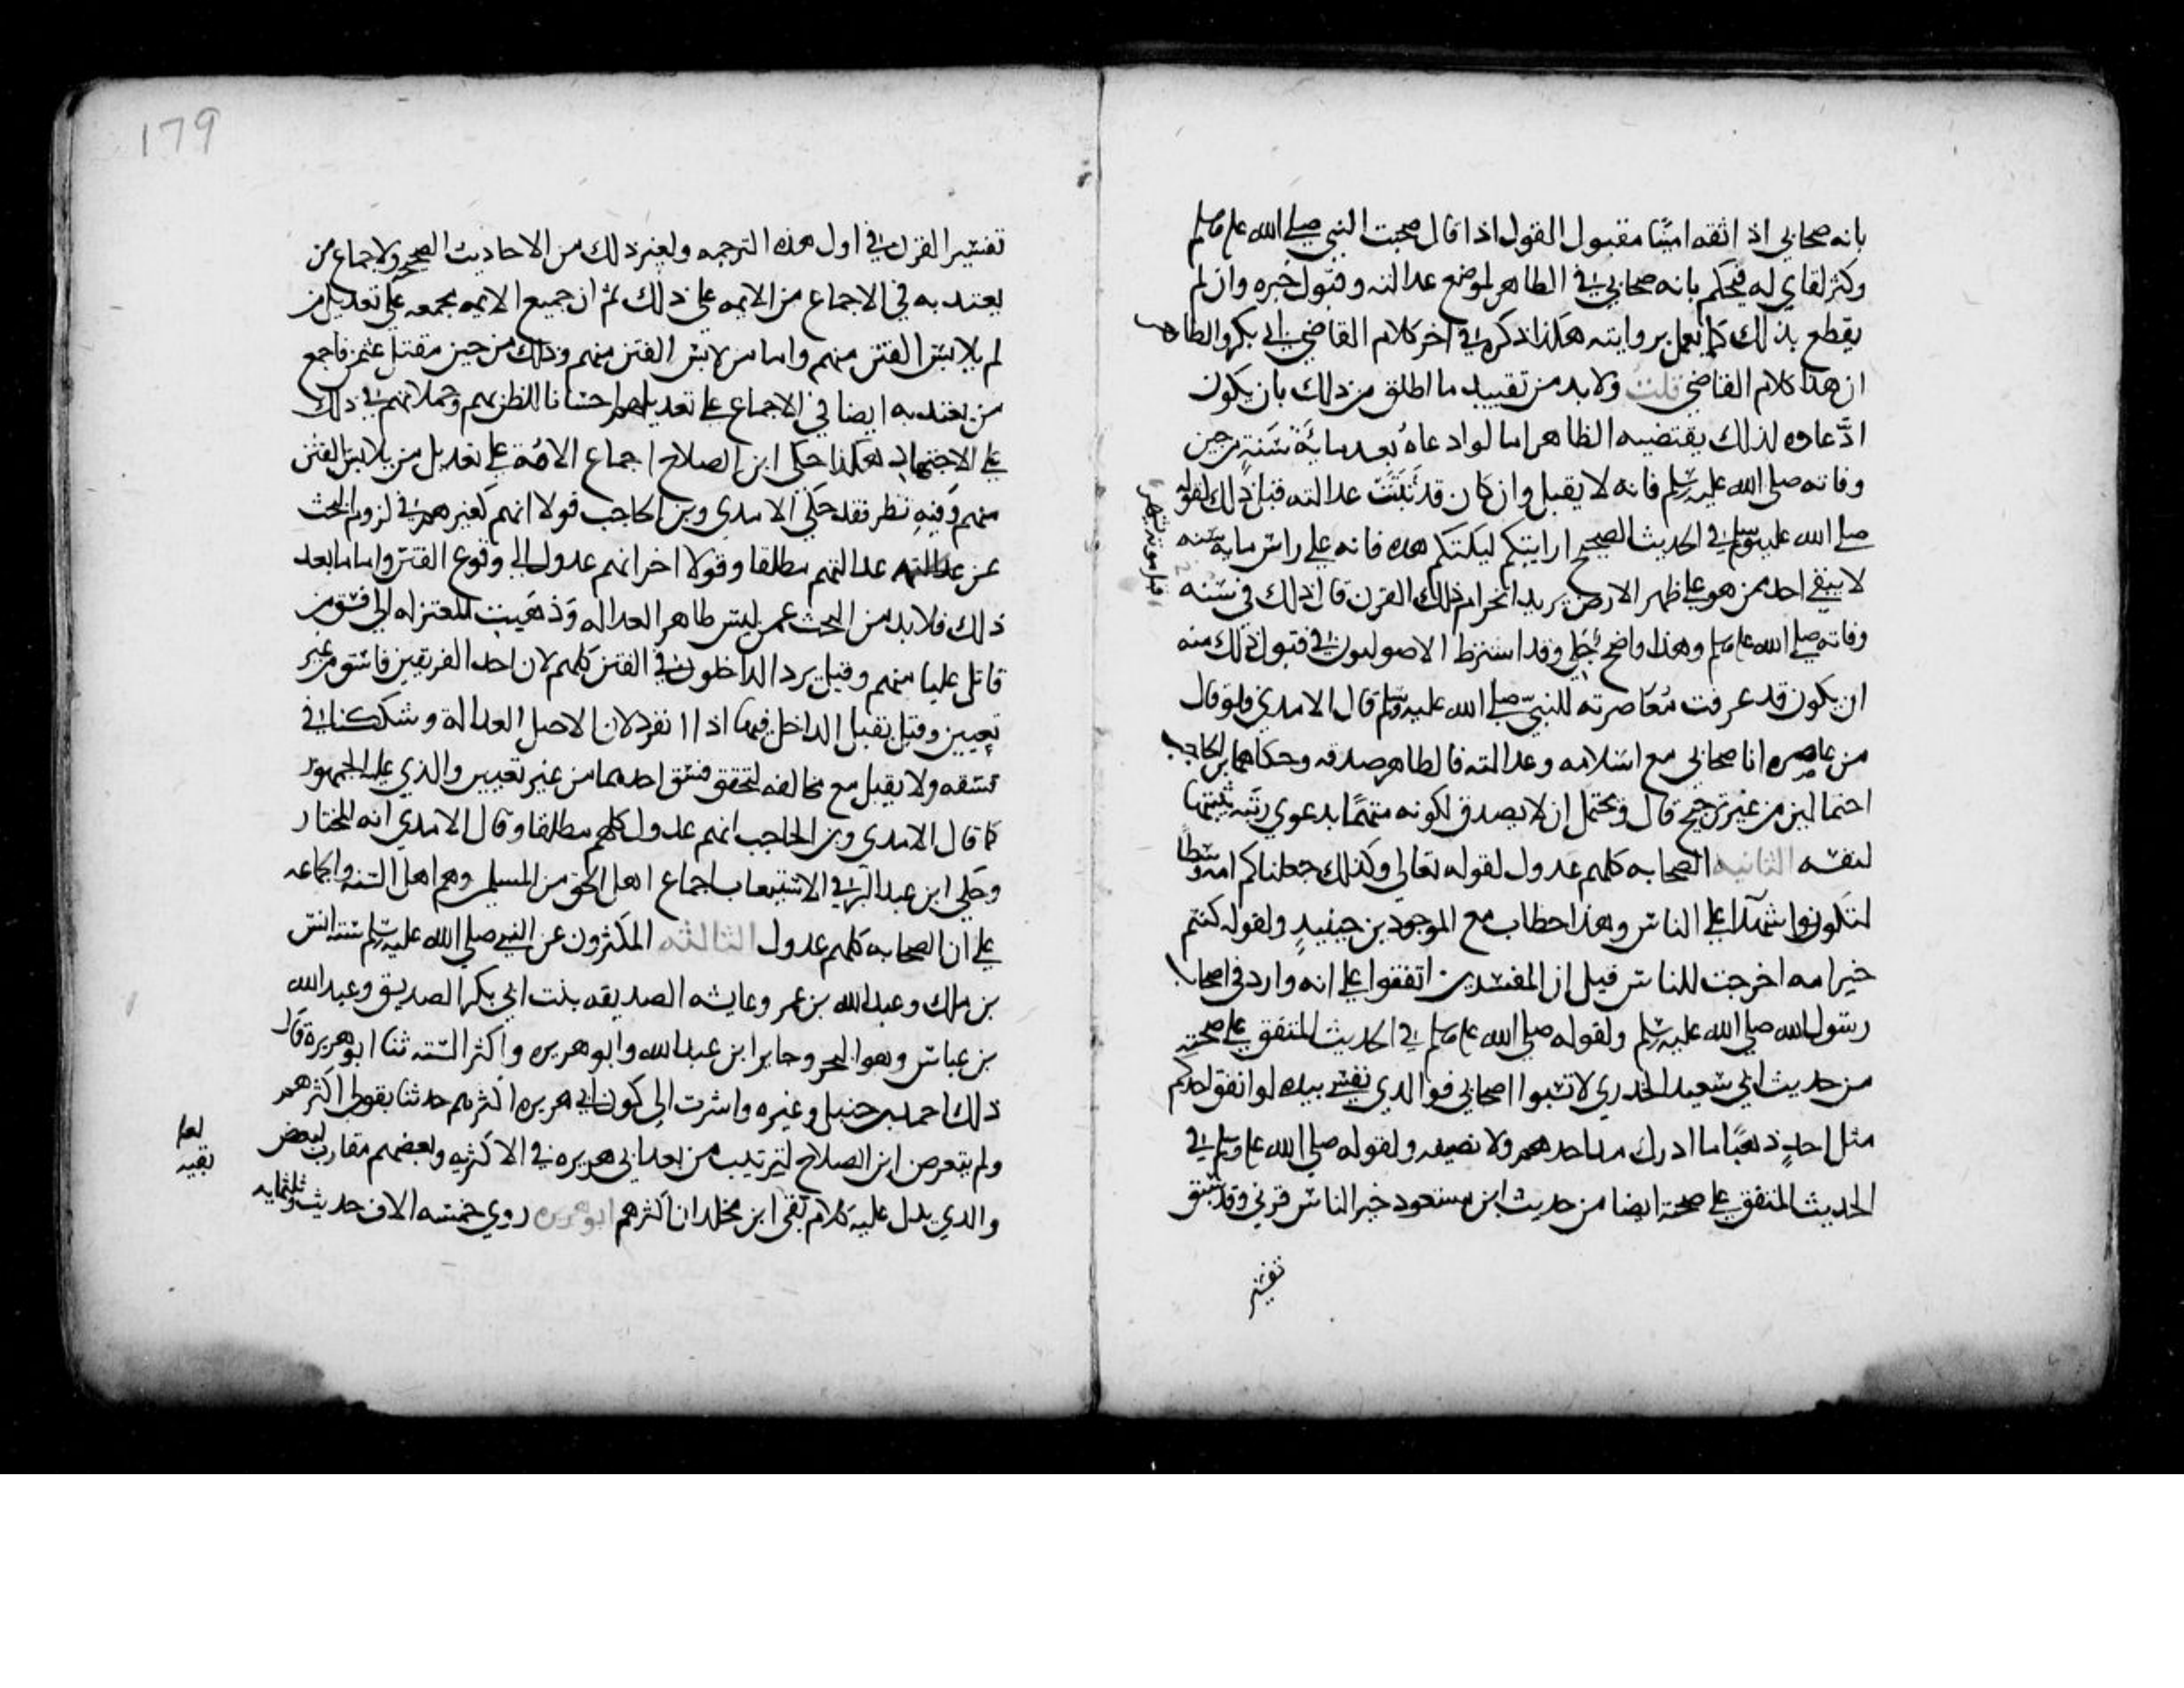 بانه صحابي اذ اثقه امينا مقبول القول اذا قال صحبت النبي صلى الله عليه وسلم
وكثر لقاي له فيحكم بانه صحابي في الظاهر لموضع عدالته وقبول خبره وان لم
يقطع بذلك كما يعمل بروايته هكذا ذكره في اخر كلام القاضي ابي بكر والظاهر
ان هذا كلام القاضي قلت ولا بد من تقييد ما اطلق من ذلك بان يكون
ادّعاوه لذلك يقتضيه الظاهر اما لو ادعاه بعد ماية سنة من حين
وفاته صلى الله عليه وسلم فانه لا يقبل وان كان قد ثبتت عدالته قبل ذلك لقوله
صلى الله عليه وسلم في الحديث الصحيح ارايتكم ليلتكم هذه فانه على راس ماية سنه
لا يبقي احد ممن هو على ظهر الارض يريد انخرام ذلك القرن قال ذلك في سنه
وفاته صلى الله عليه وسلم وهذا واضح جلي وقد اشترط الاصوليون في قبول ذلك منه
ان يكون قد عرفت مُعاصرته للنبي صلى الله عليه وسلم قال الامدي فلو قال
من عاصره انا صحابي مع اسلامه وعدالته فالظاهر صدقه وحكاهما بن الحاجب
احتمالين من غير ترجيح قال ويحتمل ان لا يصدق لكونه متهمًا بدعوي رتبه يثبتها
لنفسه الثانيه الصحابه كلهم عدول لقوله تعالي وكذلك جعلناكم امه وسطًا
لتكونوا شهدآ على الناس وهذا خطاب مع الموجودين حينيدٍ ولقوله كنتم
خير امه اخرجت للناس قيل ان المفسدين اتفقوا على انه وارد في اصحاب
رسول الله صلى الله عليه وسلم ولقوله صلى الله عليه وسلم في الحديث المتفق على صحته
من حديث ابي سعيد الخدري لا تسبوا اصحابي فوالذي نفسي بيده لو انفق احدكم
مثل احدٍ ذهبًا ما ادرك مد احدهم ولا نصيفه ولقوله صلى الله عليه وسلم في
الحديث المتفق على صحته ايضا من حديث ابن مسعود خير الناس قرني وقد سبق
تفسير
179
تفسير القرن في اول هذه الترجمه ولغير ذلك من الاحاديث الصحيحه ولاجماع من
يعتد به في الاجماع من الايمه على ذلك ثم ان جميع الايمه مجمعه على تعديل من
لم يلابس الفتن منهم واما من لابس الفتن منهم وذلك من حين مقتل عثمن فاجمع
من يعتد به ايضا في الاجماع على تعديلهم احسانا للظن بهم وحملا لهم في ذلك
على الاجتهاد هكذا حكى ابن الصلاح اجماع الامّة على تعديل من يلابس الفتن
منهم وفيه نظر فقد حكى الامدي وبن الحاجب قولا انهم كغيرهم في لزوم البحث
عن عدالتهم عدالتهم مطلقا وقولا اخر انهم عدول الي وقوع الفتن واما ما بعد
ذلك فلا بد من البحث عمن ليس ظاهر العداله وذهبت المعتزله الي فسق من
قاتل عليا منهم وقيل يرد الداخلون في الفتن كلهم لان احد الفريقين فاسق من غير
تعيين وقيل يقبل الداخل فيها اذا انفرد لان الاصل العدالة وشككنا في
فسقه ولا يقبل مع مخالفه لتحقق فسق احدهما من غير تعيين والذي عليه الجمهور
كما قال الامدي وبن الحاجب انهم عدول كلهم مطلقا وقال الامدي انه المختار
وحكي ابن عبد البر في الاستيعاب اجماع اهل الحق من المسلمين وهم اهل السنه والجماعه
على ان الصحابه كلهم عدول الثالثه المكثرون عن النبي صلى الله عليه وسلم سته انس
بن ملك وعبد الله بن عمر وعايشه الصديقه بنت ابي بكر الصديق وعبد الله
بن عباس وهو البحر وجابر ابن عبد الله وابو هريره واكثر السته ثنا ابو هريرة قال
ذلك احمد بن حنبل وغيره واشرت الي كون ابي هريره اكثرهم حدثنا بقولي اكثرهم
ولم يتعرض ابن الصلاح لترتيب من بعد ابي هريره في الاكثريه وبعضهم مقارب لبعض
والذي يدل عليه كلام بقي ابن مخلد ان اكثرهم ابو هريره روي خمسه الاف حديث وثلثمايه